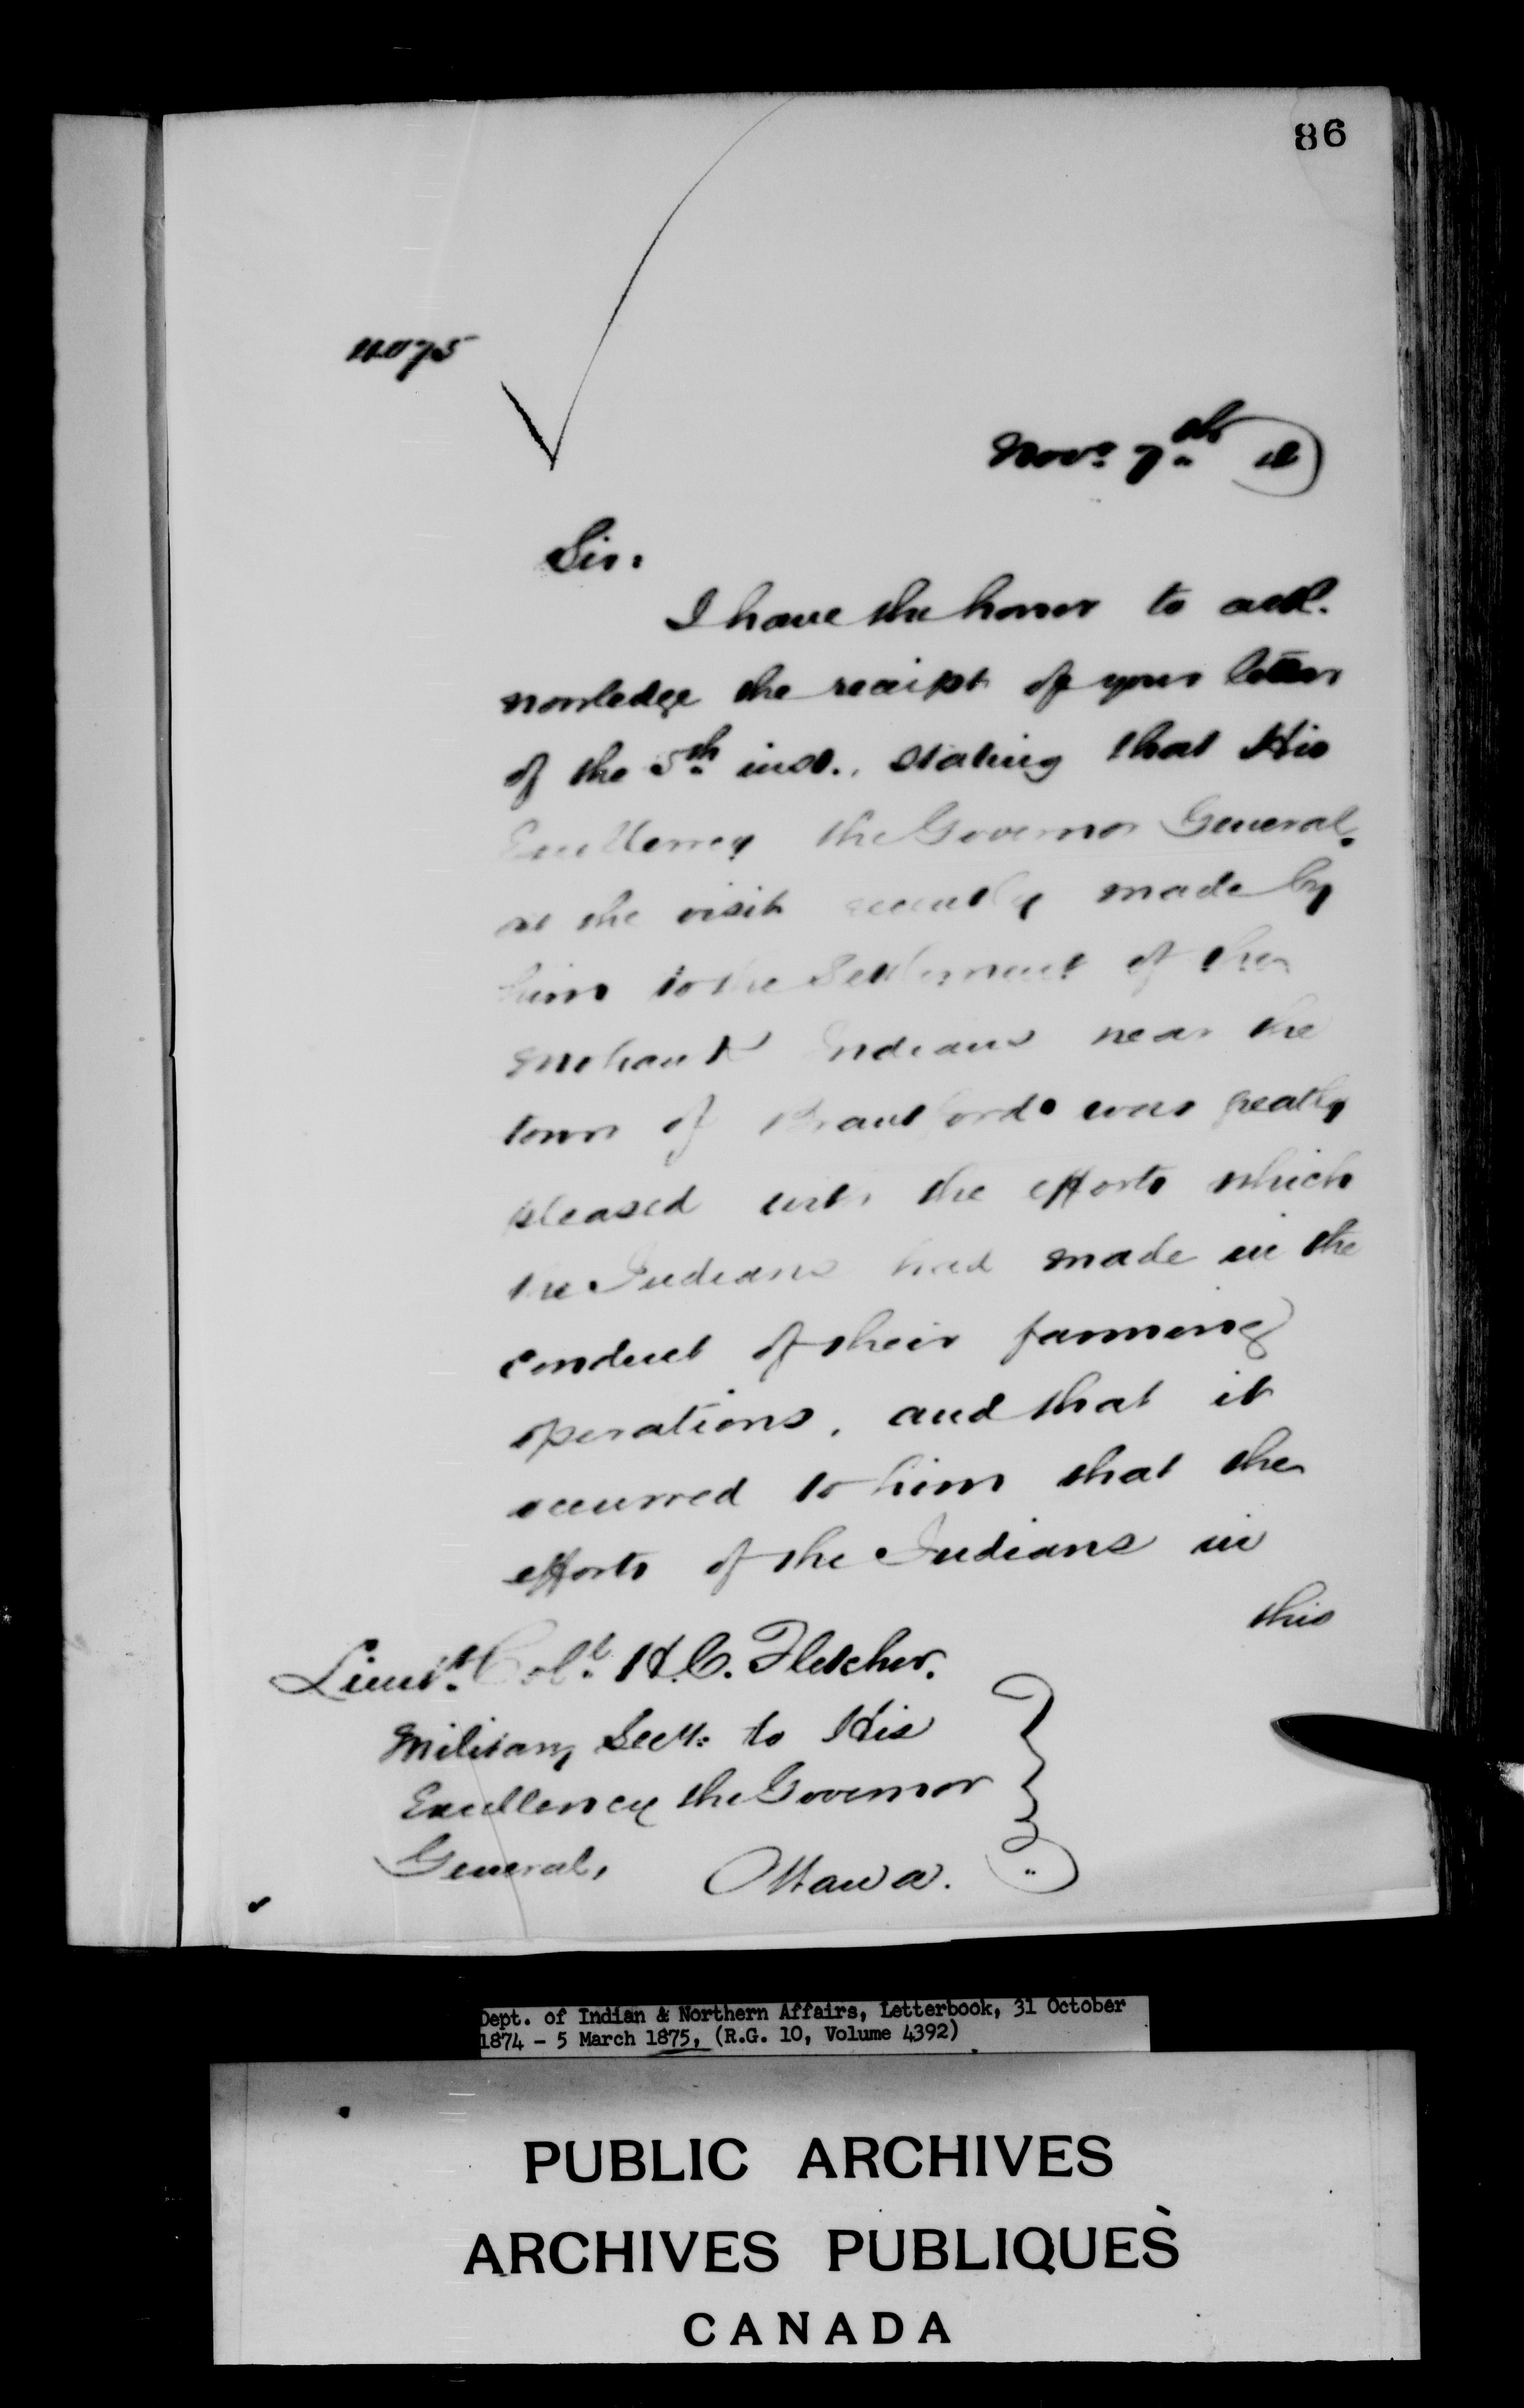 86
Nov. 7th
Sir.
I have the honor to ack-
nowledge the receipt of your letter
of the 5th inst., stating that His
Excellency the Governor General,
at the visit recently made by
him to the Settlement of the
Mohawk Indians near the
town of Brantford was greatly
pleased with the efforts which
the Indians had made in the
conduct of their farming
operations, and that it
occurred to him that the
efforts of the Indians in
this
Lieut. Col. H.C. Fletcher.
Military Secty. to His
Excellency the Governor
General,
Ottawa.
Dept. of Indian & Northern Affairs, Letterbook, 31 October
1874 - 5 March 1875, (R.G. 10, Volume 4392)
PUBLIC ARCHIVES
ARCHIVES PUBLIQUES
CANADA